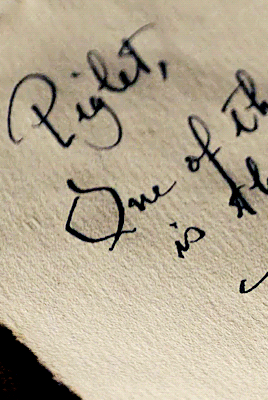 Piglet,
One of th
is th